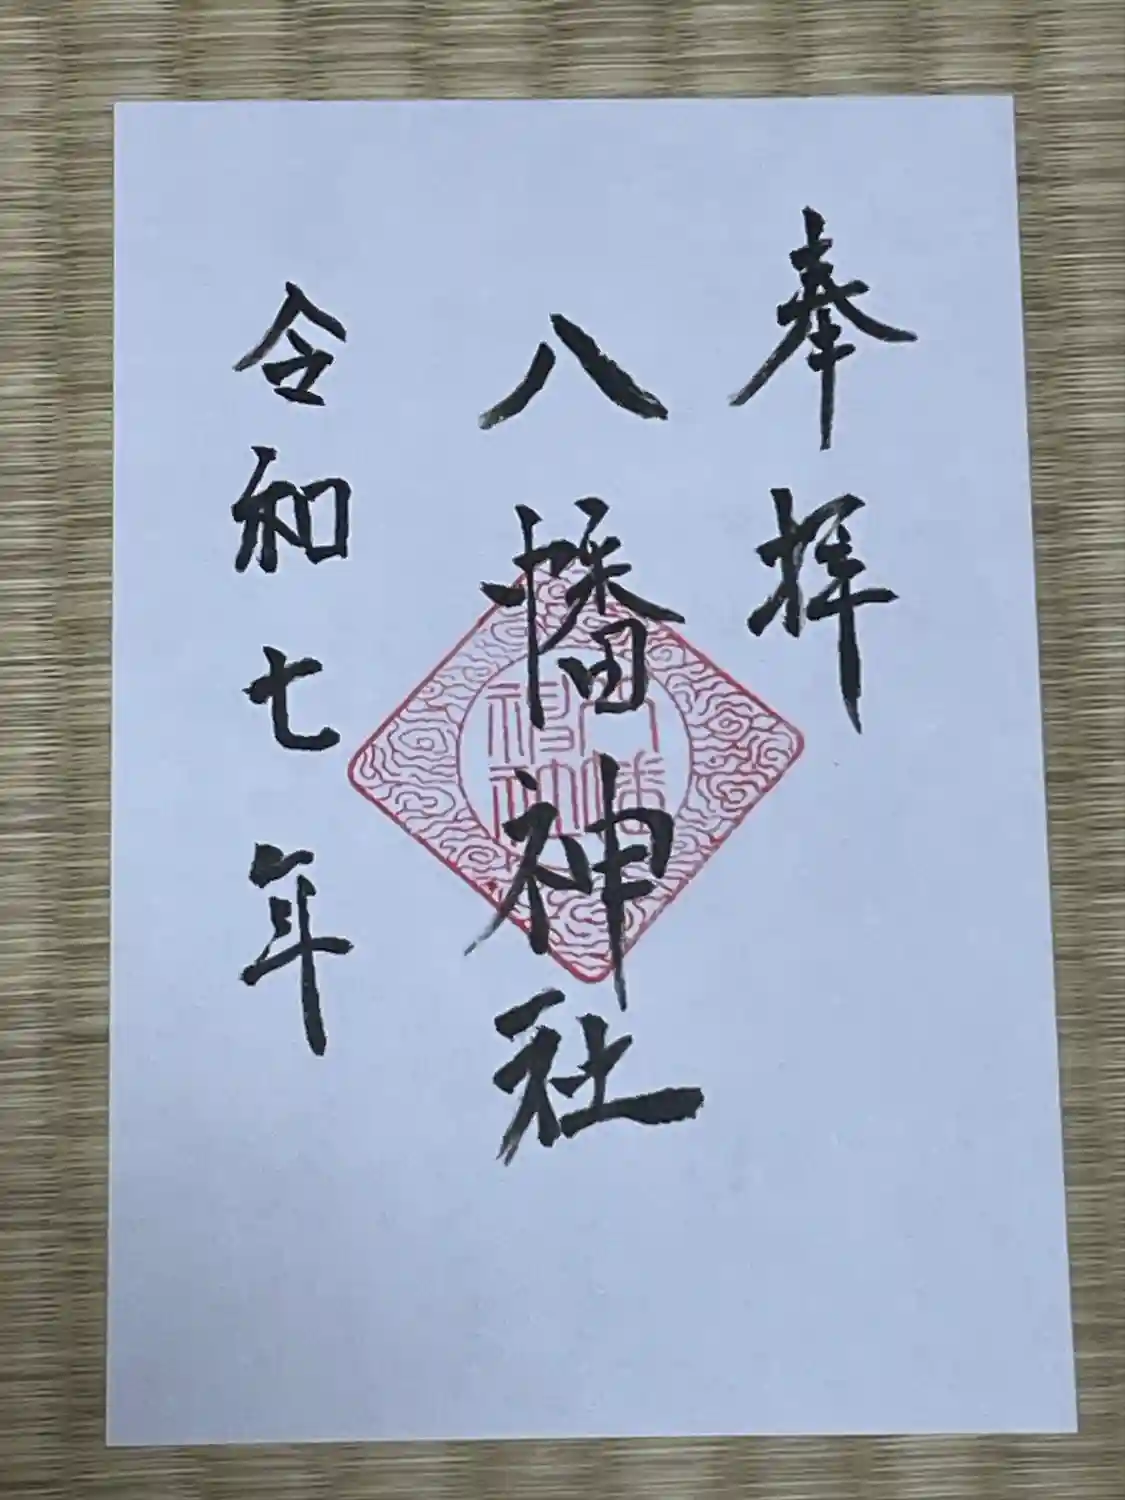 奉拝
八幡神社
令和七年
八幡
神社